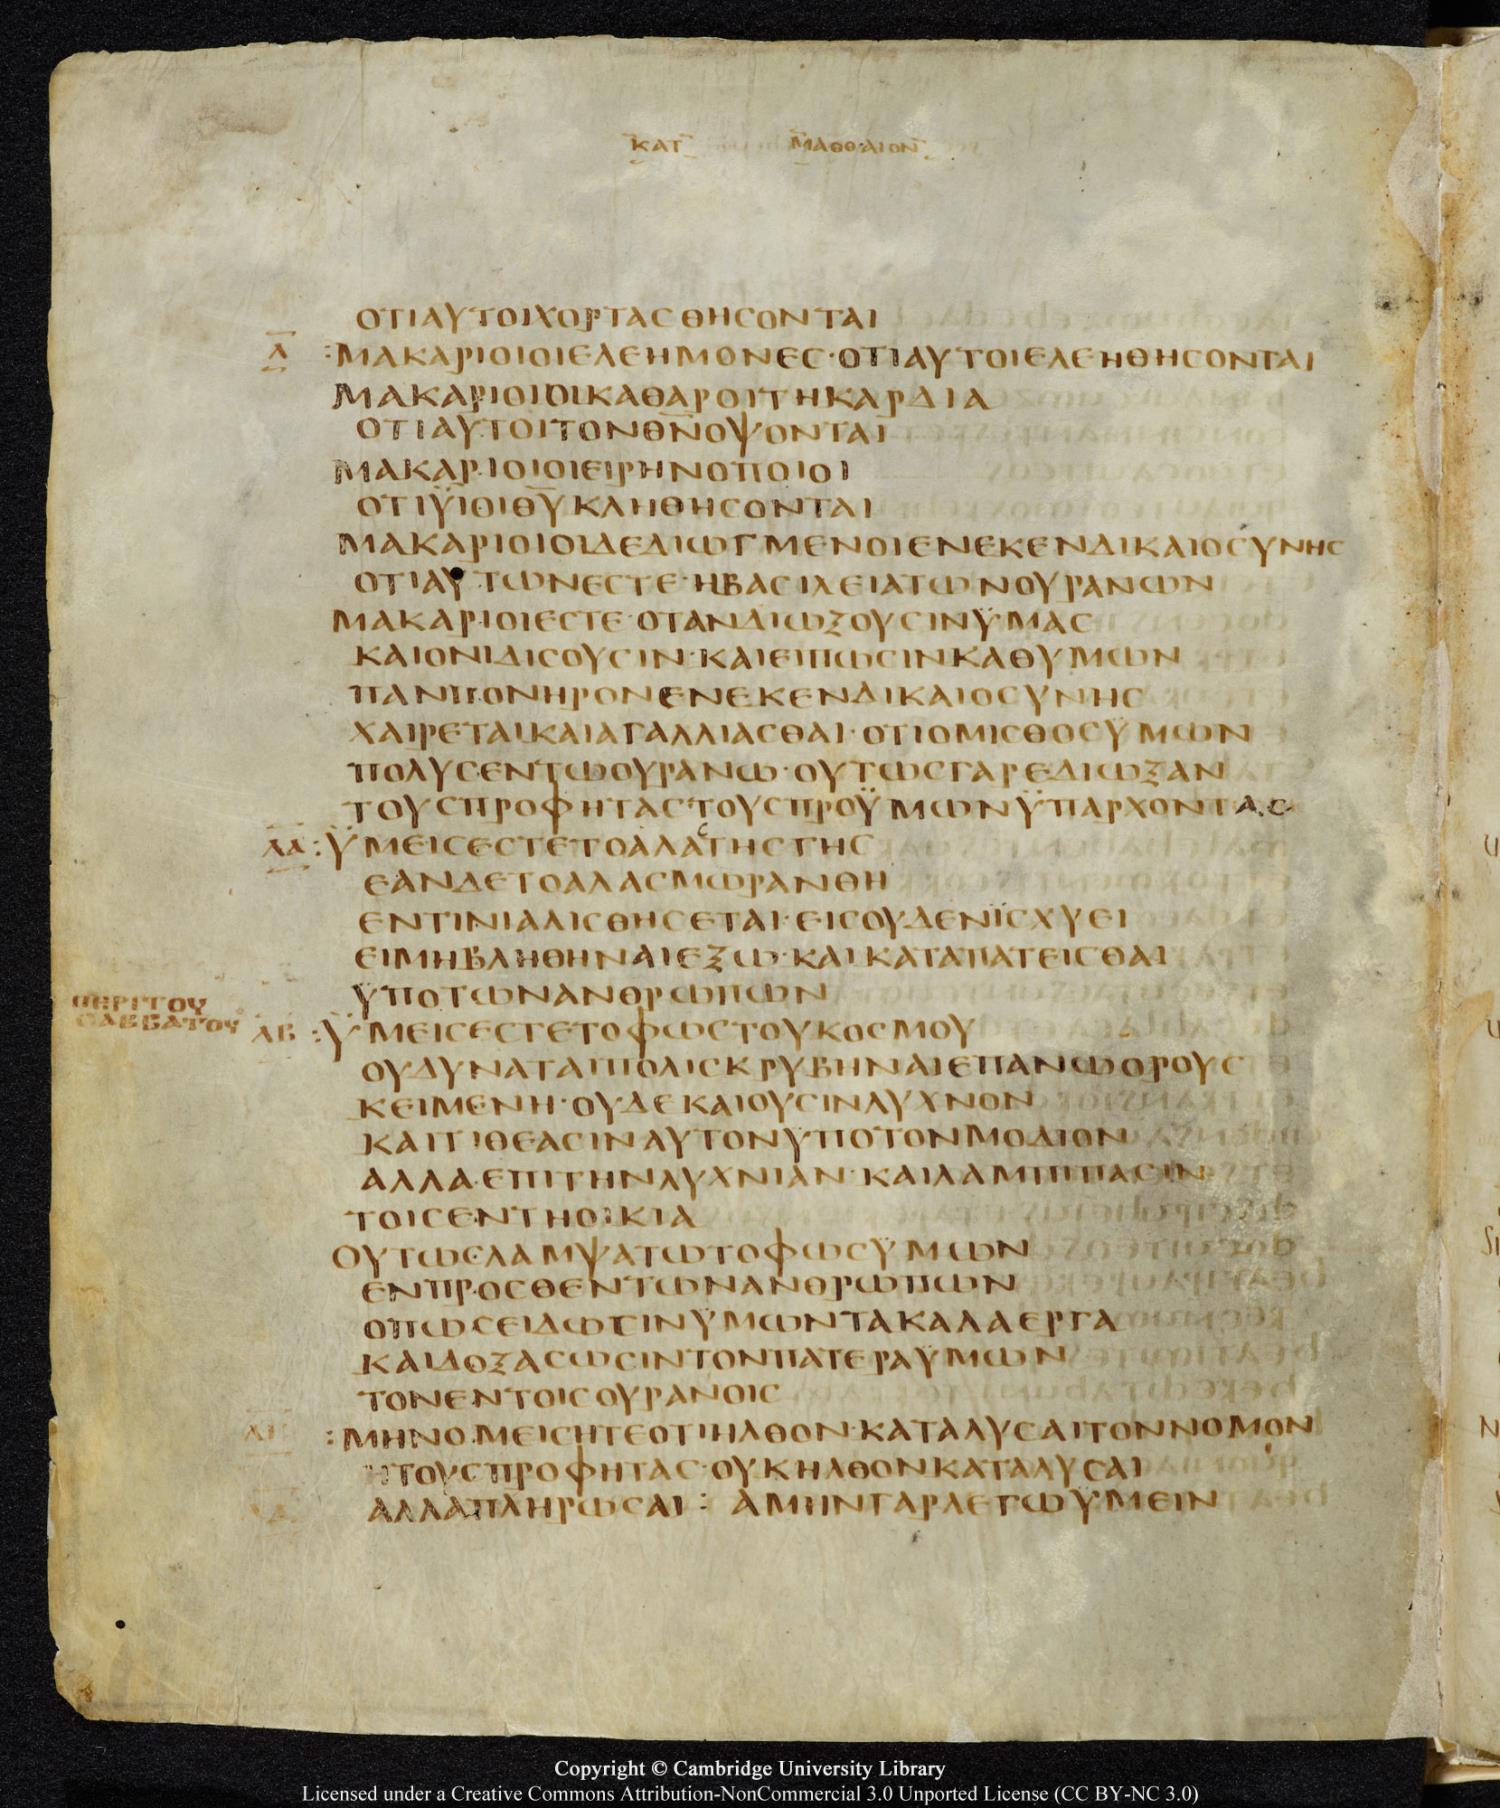 ΚΑΤ ΜΑΘΘΑΙΟΝ
ΟΤΙΑΥΤΟΙΧΟΡΤΑСΘΗСΟΝΤΑΙ
Λ :ΜΑΚΑΡΙΟΙΟΙΕΛΕΗΜΟΝΕС·ΟΤΙΑΥΤΟΙΕΛΕΗΘΗСΟΝΤΑΙ
ΜΑΚΑΡΙΟΙΟΙΚΑΘΑΡΟΙΤΗΚΑΡΔΙΑ
ΟΤΙΑΥΤΟΙΤΟΝΘ̅Ν̅ΟΨΟΝΤΑΙ
ΜΑΚΑΡΙΟΙΟΙΕΙΡΗΝΟΠΟΙΟΙ
ΟΤΙΫΙΟΙΘ̅Υ̅ΚΛΗΘΗСΟΝΤΑΙ
ΜΑΚΑΡΙΟΙΟΙΔΕΔΙΩΓΜΕΝΟΙΕΝΕΚΕΝΔΙΚΑΙΟСΥΝΗС
ΟΤΙΑΥΤΩΝΕСΤΕ·ΗΒΑСΙΛΕΙΑΤΩΝΟΥΡΑΝΩΝ
ΜΑΚΑΡΙΟΙΕСΤΕ·ΟΤΑΝΔΙΩΞΟΥСΙΝΫΜΑС
ΚΑΙΟΝΙΔΙСΟΥСΙΝ·ΚΑΙΕΙΠΩСΙΝΚΑΘΥΜΩΝ
ΠΑΝΠΟΝΗΡΟΝΕΝΕΚΕΝΔΙΚΑΙΟСΥΝΗС
ΧΑΙΡΕΤΑΙΚΑΙΑΓΑΛΛΙΑСΘΑΙ·ΟΤΙΟΜΙСΘΟСΫΜΩΝ
ΠΟΛΥСΕΝΤΩΟΥΡΑΝΩ·ΟΥΤΩСΓΑΡΕΔΙΩΞΑΝ
ΤΟΥСΠΡΟΦΗΤΑСΤΟΥСΠΡΟΫΜΩΝΫΠΑΡΧΟΝΤΑС
ΛΑ :ΫΜΕΙСΕСΤΕΤΟΑΛΑСΤΗСΓΗС
ΕΑΝΔΕΤΟΑΛΑСΜΩΡΑΝΘΗ
ΕΝΤΙΝΙΑΛΙСΘΗСΕΤΑΙ·ΕΙСΟΥΔΕΝΪСΧΥΕΙ
ΕΙΜΗΒΛΗΘΗΝΑΙΕΞΩ·ΚΑΙΚΑΤΑΠΑΤΕΙСΘΑΙ
ΫΠΟΤΩΝΑΝΘΡΩΠΩΝ
ΠΕΡΙΤΟΥ
СΑΒΒΑΤΟΥ
ΛΒ :ΫΜΕΙСΕСΤΕΤΟΦΩСΤΟΥΚΟСΜΟΥ
ΟΥΔΥΝΑΤΑΙΠΟΛΙСΚΡΥΒΗΝΑΙΕΠΑΝΩΟΡΟΥС
ΚΕΙΜΕΝΗ·ΟΥΔΕΚΑΙΟΥСΙΝΛΥΧΝΟΝ
ΚΑΙΤΙΘΕΑСΙΝΑΥΤΟΝΥΠΟΤΟΝΜΟΔΙΟΝ
ΑΛΛΑ·ΕΠΙΤΗΝΛΥΧΝΙΑΝ·ΚΑΙΛΑΜΠΙΠΑСΙΝ
ΤΟΙСΕΝΤΗΟΙΚΙΑ
ΟΥΤΩСΛΑΜΨΑΤΩΤΟΦΩСΫΜΩΝ
ΕΝΠΡΟСΘΕΝΤΩΝΑΝΘΡΩΠΩΝ
ΟΠΩСΕΙΔΩСΙΝΫΜΩΝΤΑΚΑΛΑΕΡΓΑ
ΚΑΙΔΟΞΑСΩСΙΝΤΟΝΠΑΤΕΡΑΫΜΩΝ
ΤΟΝΕΝΤΟΙСΟΥΡΑΝΟΙС
ΛΓ :ΜΗΝΟΜΕΙСΗΤΕΟΤΙΗΛΘΟΝ·ΚΑΤΑΛΥСΑΙΤΟΝΝΟΜΟΝ
ΗΤΟΥСΠΡΟΦΗΤΑС·ΟΥΚΗΛΘΟΝΚΑΤΑΛΥСΑΙ
ΑΛΛΑΠΛΗΡΩСΑΙ : ΑΜΗΝΓΑΡΛΕΓΩΫΜΕΙΝ
Copyright © Cambridge University Library
Licensed under a Creative Commons Attribution-NonCommercial 3.0 Unported License (CC BY-NC 3.0)